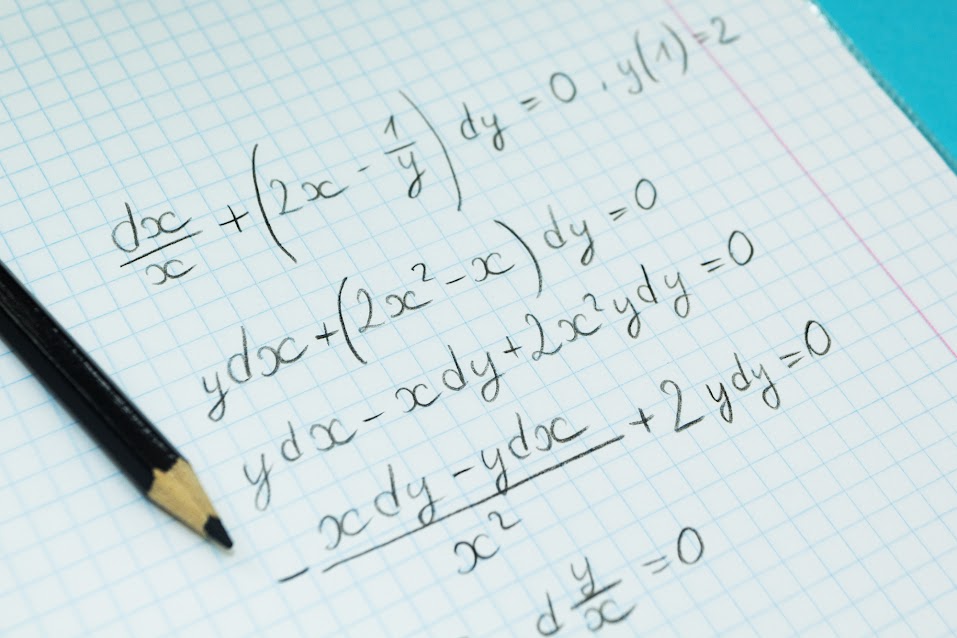 dx/x + (2x - 1/y) dy = 0, y(1) = 2
ydx + (2x² - x) dy = 0
ydx - xdy + 2x²ydy = 0
- (xdy - ydx)/x² + 2ydy = 0
d y/x = 0